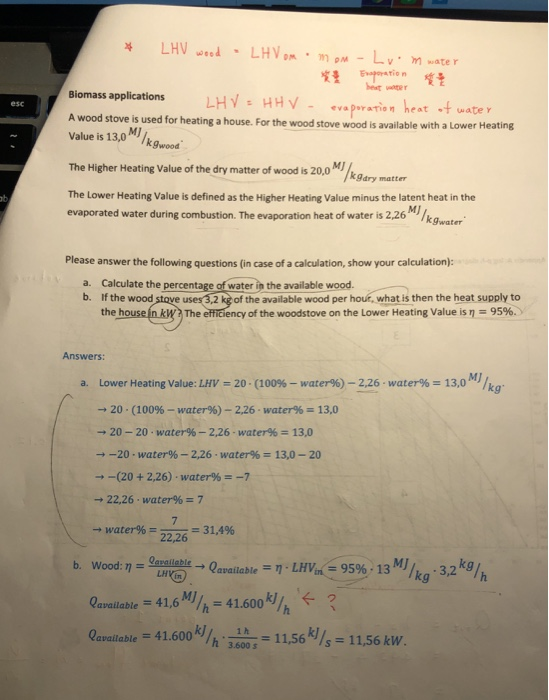 * LHV wood = LHV DM · m DM - Lv · m water
質量 Evaporation 質量
heat water
esc
Biomass applications
LHV = HHV - evaporation heat of water
A wood stove is used for heating a house. For the wood stove wood is available with a Lower Heating
Value is 13,0 MJ/kgwood.
The Higher Heating Value of the dry matter of wood is 20,0 MJ/kgdry matter
The Lower Heating Value is defined as the Higher Heating Value minus the latent heat in the
evaporated water during combustion. The evaporation heat of water is 2,26 MJ/kgwater.
Please answer the following questions (in case of a calculation, show your calculation):
a. Calculate the percentage of water in the available wood.
b. If the wood stove uses 3,2 kg of the available wood per hour, what is then the heat supply to
the house in kW? The efficiency of the woodstove on the Lower Heating Value is η = 95%.
Answers:
a. Lower Heating Value: LHV = 20 · (100% − water%) − 2,26 · water% = 13,0 MJ/kg.
→ 20 · (100% − water%) − 2,26 · water% = 13,0
→ 20 − 20 · water% − 2,26 · water% = 13,0
→ −20 · water% − 2,26 · water% = 13,0 − 20
→ −(20 + 2,26) · water% = −7
→ 22,26 · water% = 7
→ water% = 7/22,26 = 31,4%
b. Wood: η = Qavailable/LHVin → Qavailable = η · LHVin = 95% · 13 MJ/kg · 3,2 kg/h
Qavailable = 41,6 MJ/h = 41.600 kJ/h ← ?
Qavailable = 41.600 kJ/h · 1 h/3.600 s = 11,56 kJ/s = 11,56 kW.